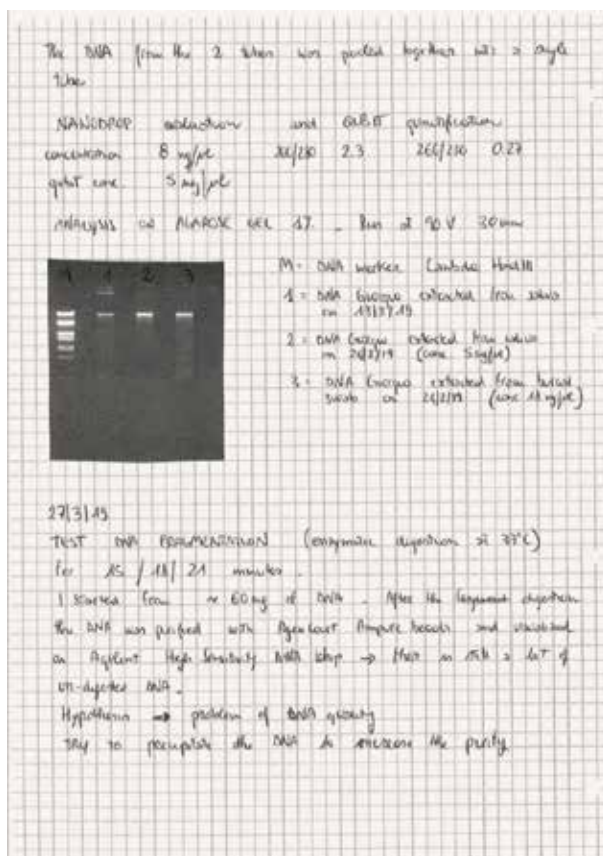 The DNA from the 2 tubes was pooled together into a single
tube
NANODROP evaluation and QUBIT quantification
concentration 8 ng/µl 260/280 2.3 260/230 0.27
qubit conc. 5 ng/µl
ANALYSIS ON AGAROSE GEL 1%. Run at 90 V 30 min
M 1 2 3
M = DNA marker Lambda HindIII
1 = DNA extracted from saliva
on
2 = DNA extracted from saliva
on (conc. 5 ng/µl)
3 = DNA extracted from buccal
swab on (conc ng/µl)
27/3/19
TEST DNA FRAGMENTATION (enzymatic digestion at 37°C)
for 15 / 18 / 21 minutes.
I started from ~ 60 ng of DNA. After the digestion
the DNA was purified with Agencourt Ampure beads and visualized
on Agilent High Sensitivity DNA chip → there is still a lot of
un-digested DNA.
Hypothesis → problem of DNA quality
try to precipitate the DNA to increase the purity